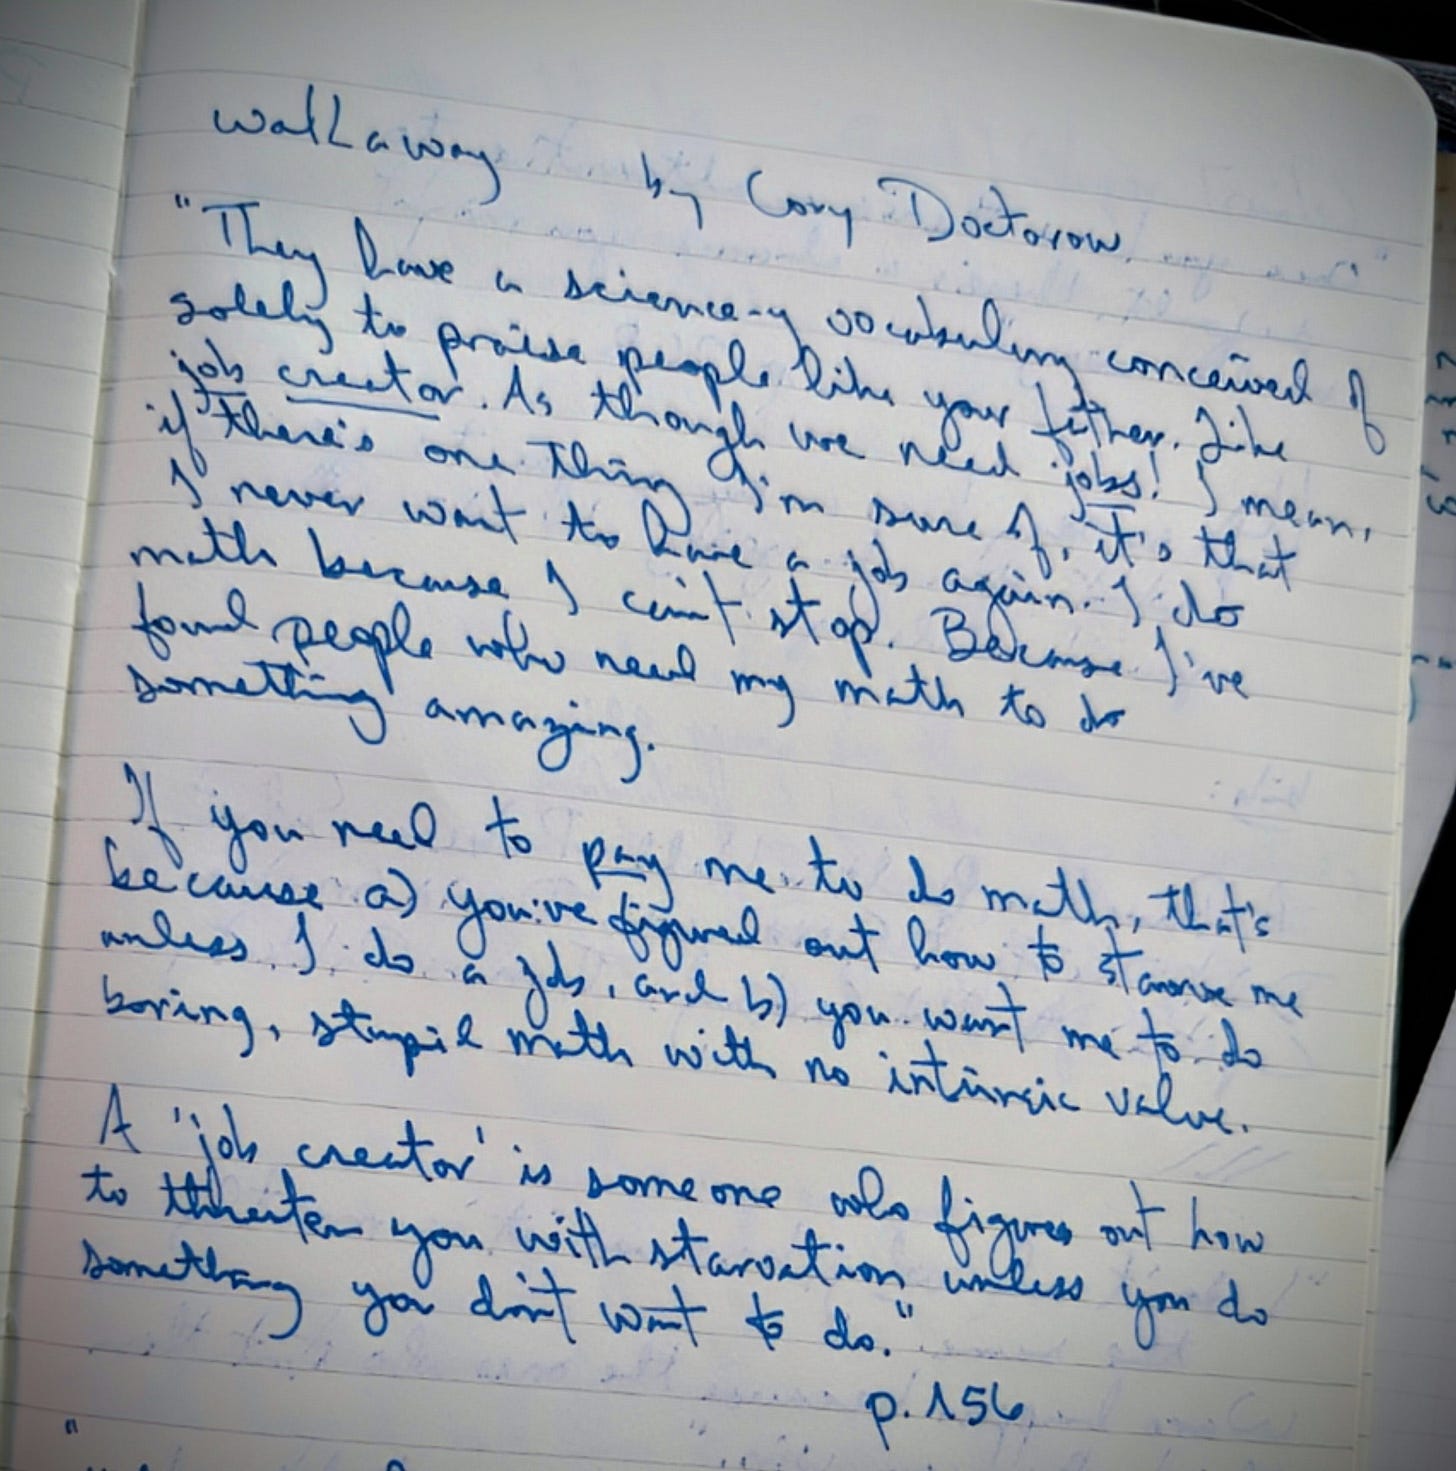 Walkaway by Cory Doctorow
"They have a science-y vocabulary conceived of
solely to praise people like your father. Like
job creator. As though we need jobs! I mean,
if there's one thing I'm sure of, it's that
I never want to have a job again. I do
math because I can't stop. Because I've
found people who need my math to do
something amazing.
If you need to pay me to do math, that's
because a) you've figured out how to starve me
unless I do a job, and b) you want me to do
boring, stupid math with no intrinsic value.
A 'job creator' is someone who figures out how
to threaten you with starvation unless you do
something you don't want to do."
p. 156
"